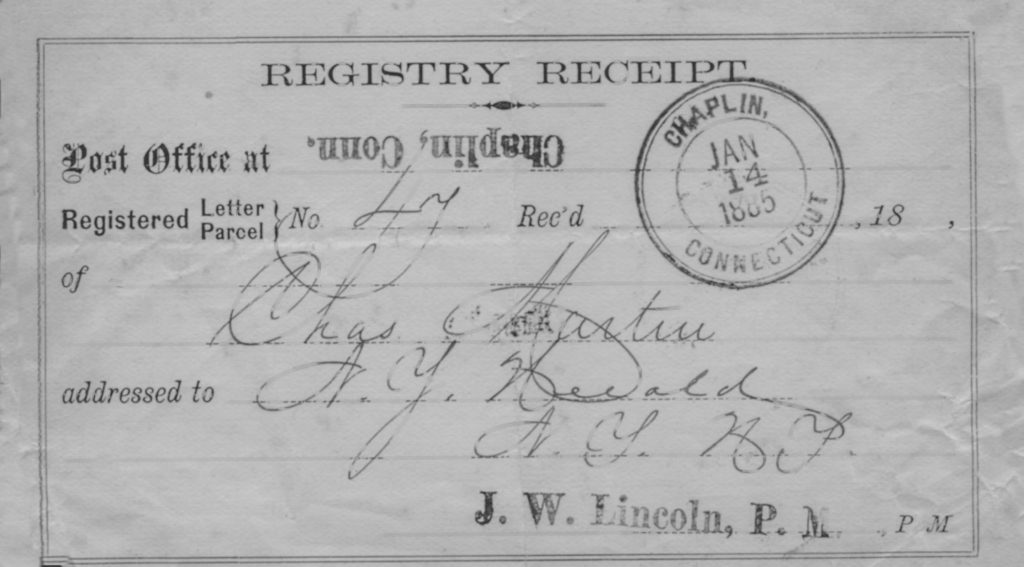 REGISTRY RECEIPT.
Post Office at Chaplin, Conn.
CHAPLIN,
JAN
14
1885
CONNECTICUT
Registered Letter Parcel } No 47 Rec'd , 18 ,
of
Chas Martin
addressed to N. Y. Herald
N. Y. N. Y.
J. W. Lincoln, P. M. , P M